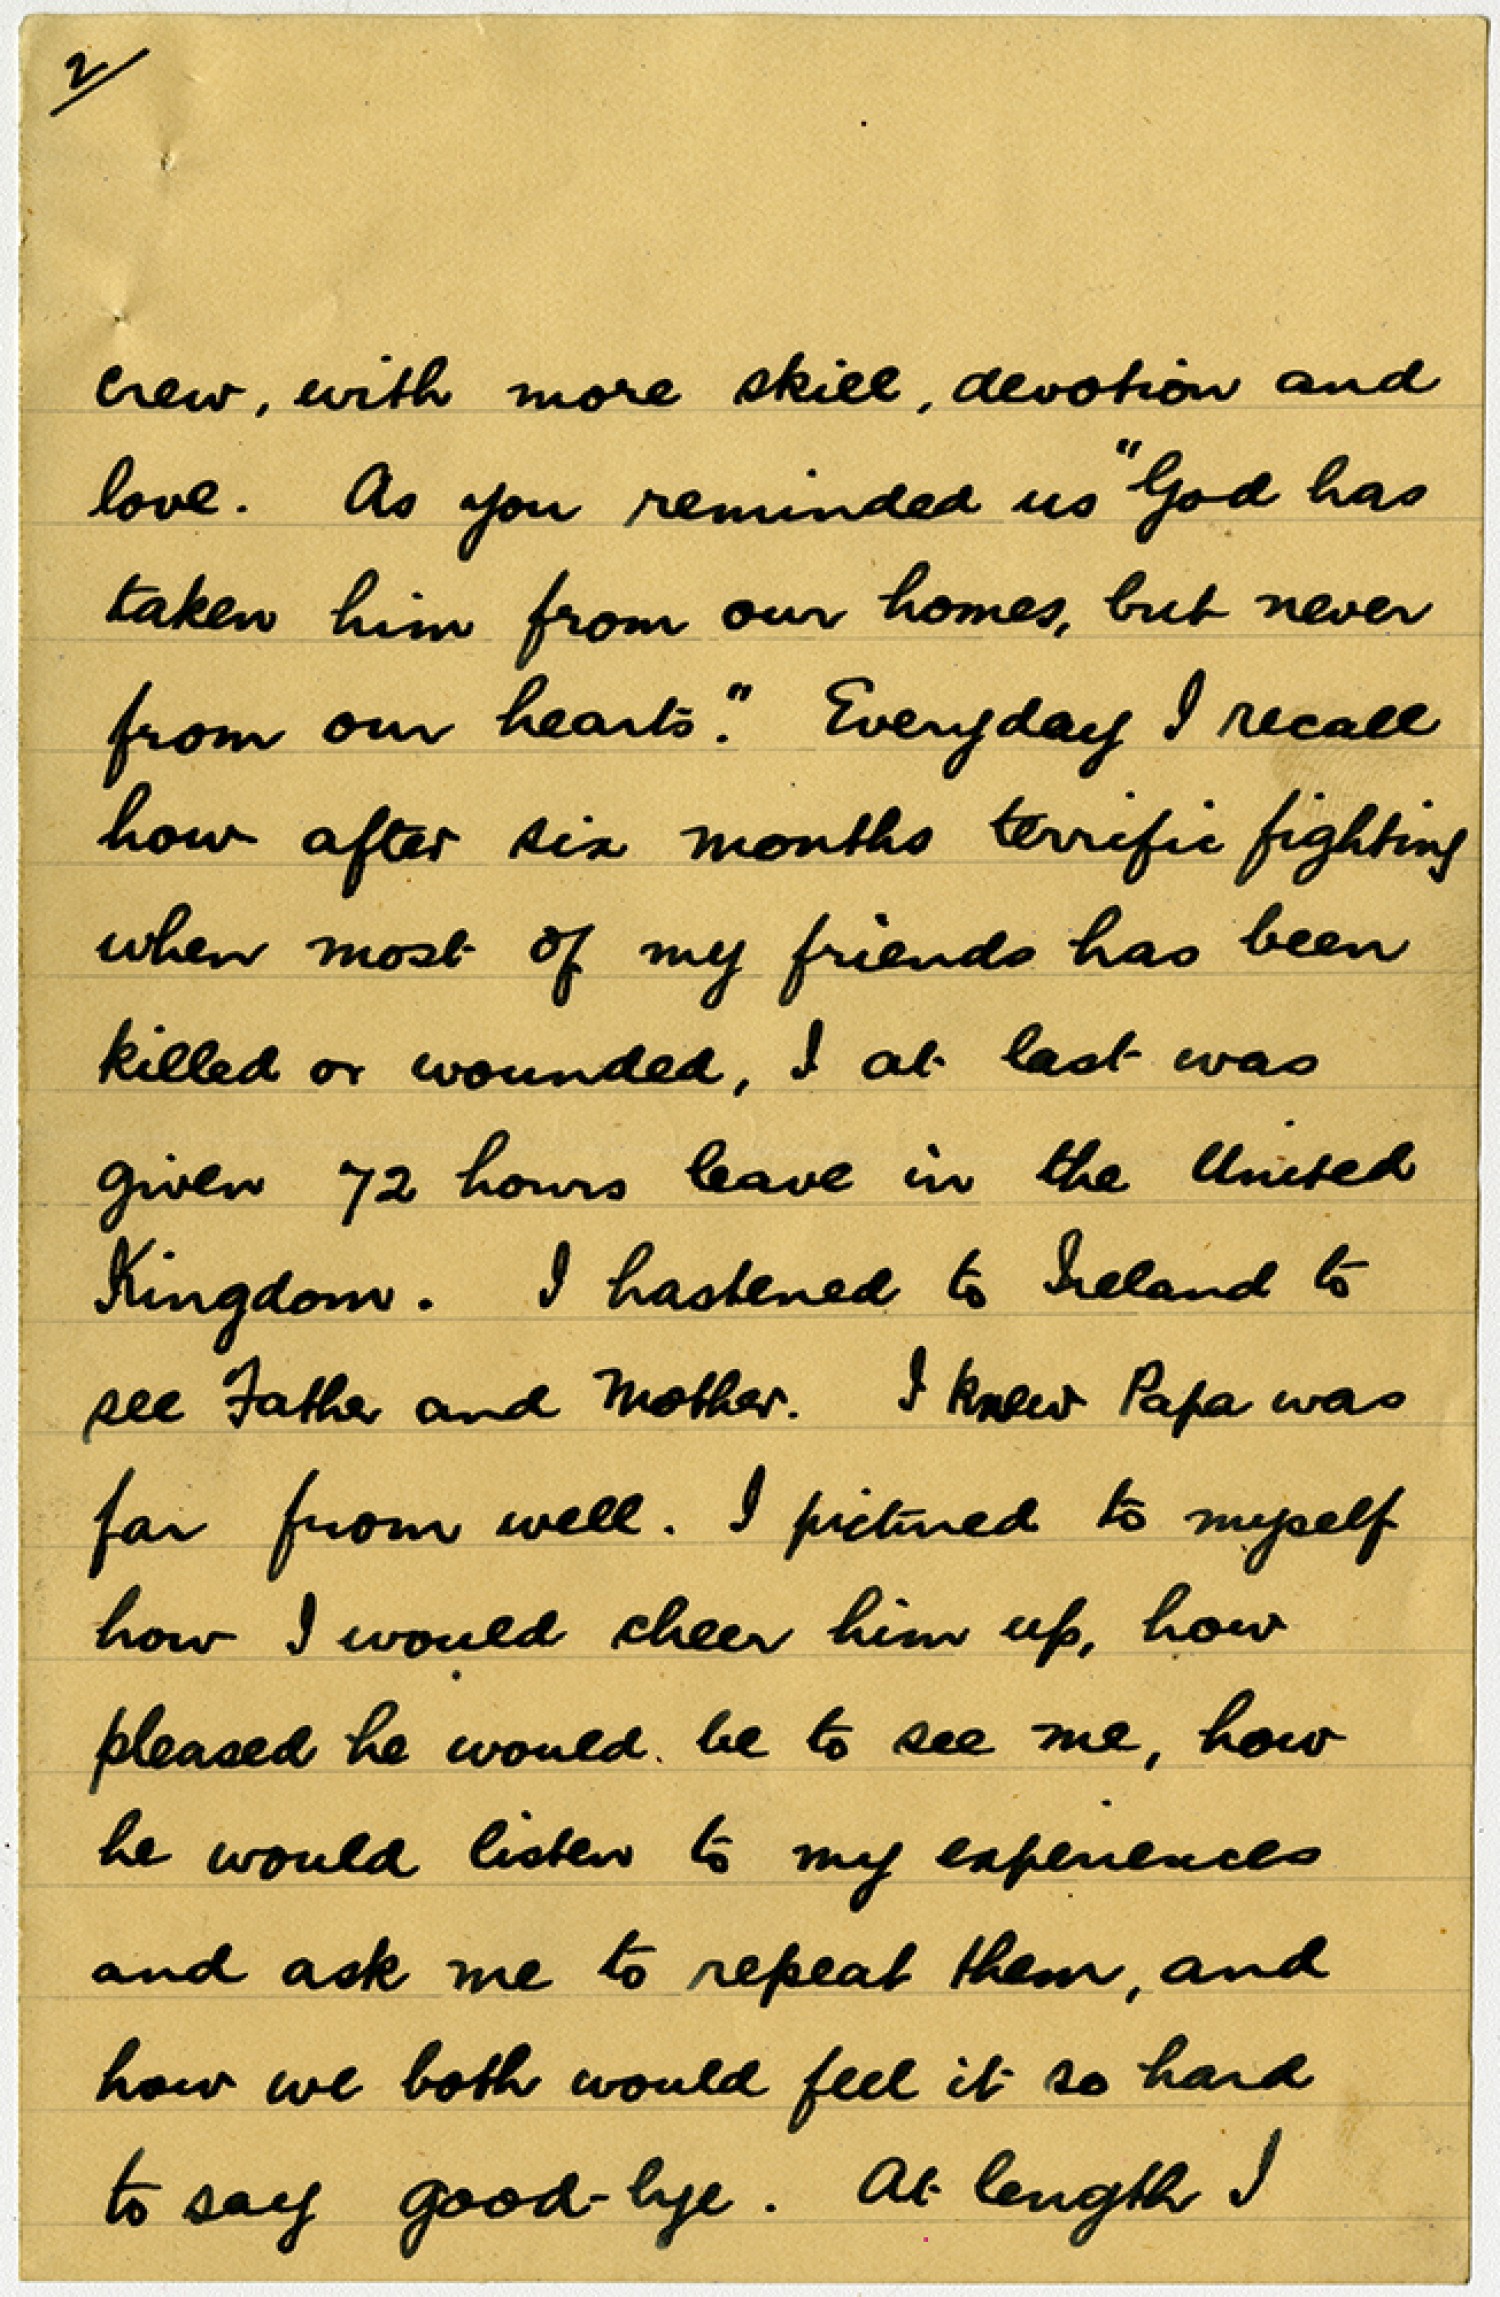 2
crew, with more skill, devotion and
love. As you reminded us "God has
taken him from our homes, but never
from our hearts." Everyday I recall
how after six months terrific fighting
when most of my friends has been
killed or wounded, I at last was
given 72 hours leave in the United
Kingdom. I hastened to Ireland to
see Father and Mother. I knew Papa was
far from well. I pictured to myself
how I would cheer him up, how
pleased he would be to see me, how
he would listen to my experiences
and ask me to repeat them, and
how we both would feel it so hard
to say good-bye. At length I